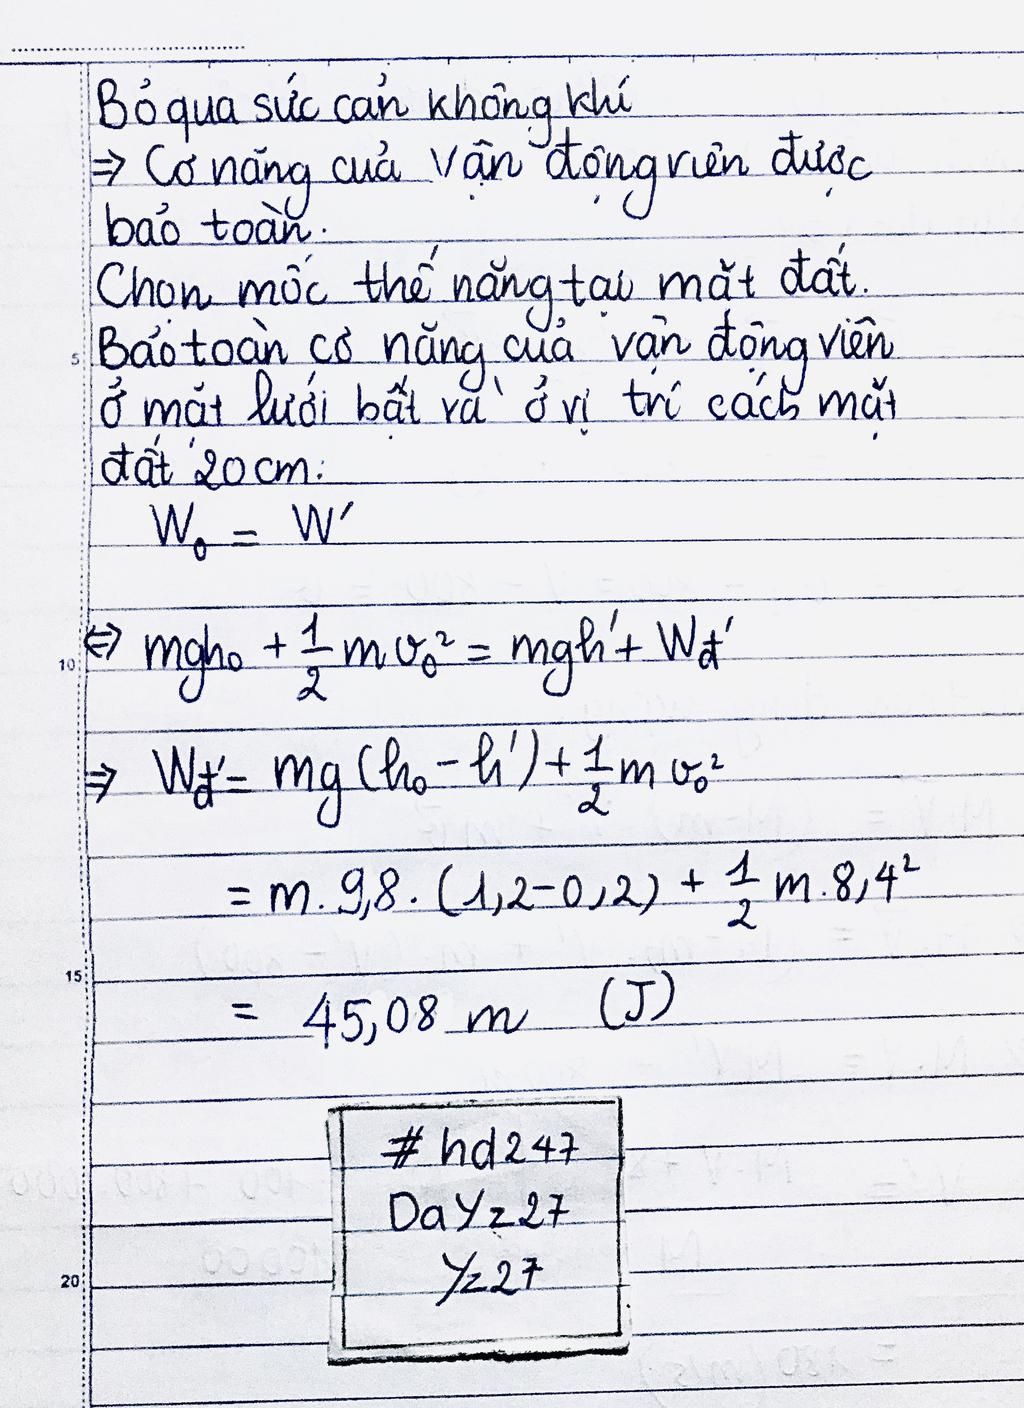 Bỏ qua sức cản không khí
⇒ Cơ năng của vận động viên được
bảo toàn.
Chọn mốc thế năng tại mặt đất.
Bảo toàn cơ năng của vận động viên
ở mặt lưới bật và ở vị trí cách mặt
đất 20 cm:
W₀ = W'
⇔ mgh₀ + 1/2 mv₀² = mgh' + Wđ'
⇒ Wđ' = mg(h₀ - h') + 1/2 mv₀²
= m. 9,8. (1,2-0,2) + 1/2 m. 8,4²
= 45,08 m (J)
# hd247
DaYz27
Yz27
5
10
15
20